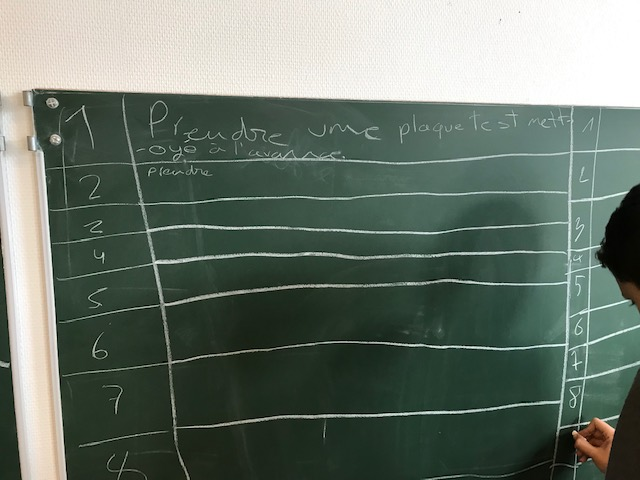 1 Prendre une plaque test nett- 1
-oyé à l'avance.
2 prendre 2
2 3
4 4
5 5
6 6
7 7
8